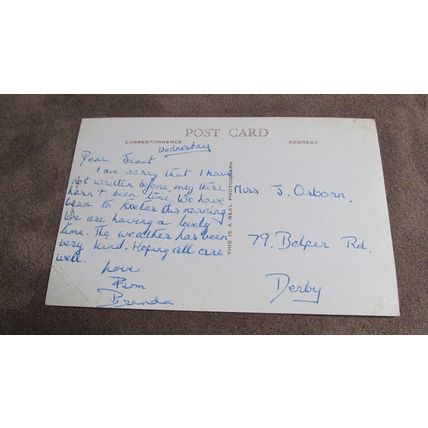 POST CARD
CORRESPONDENCE
ADDRESS
Wednesday
Dear Janet.
I am sorry that I have
not written before, only there
hasn't been time. We have
been to Exeter this morning
We are having a lovely
time. The weather has been
very kind. Hoping all are
well.
Love
From
Brenda.
THIS IS A REAL PHOTOGRAPH
Miss J. Osborn,
79, Belper Rd,
Derby